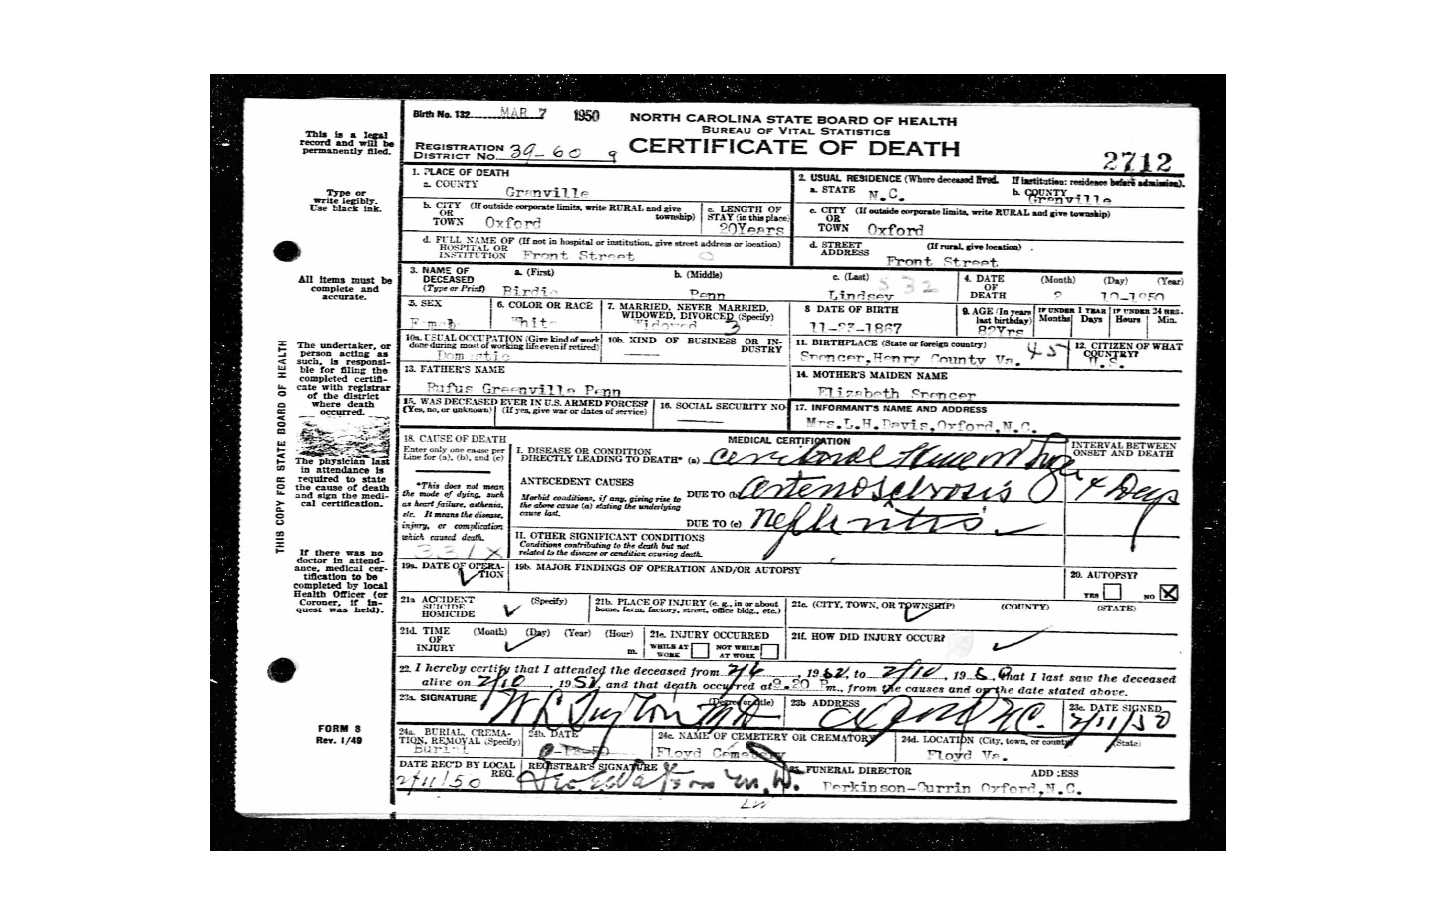 Birth No. 132 MAR 7 1950
NORTH CAROLINA STATE BOARD OF HEALTH
BUREAU OF VITAL STATISTICS
CERTIFICATE OF DEATH
REGISTRATION DISTRICT No. 39-60 9
2712
This is a legal
record and will be
permanently filed.
Type or
write legibly.
Use black ink.
All items must be
complete and
accurate.
The undertaker, or
person acting as
such, is responsi-
ble for filing the
completed certifi-
cate with registrar
of the district
where death
occurred.
The physician last
in attendance is
required to state
the cause of death
and sign the medi-
cal certification.
If there was no
doctor in attend-
ance, medical cer-
tification to be
completed by local
Health Officer (or
Coroner, if in-
quest was held).
FORM 8
Rev. 1/49
THIS COPY FOR STATE BOARD OF HEALTH
1. PLACE OF DEATH
a. COUNTY
Granville
2. USUAL RESIDENCE (Where deceased lived. If institution: residence before admission).
a. STATE N.C.
b. COUNTY Granville
b. CITY (If outside corporate limits, write RURAL and give township)
OR
TOWN Oxford
c. LENGTH OF
STAY (in this place)
20Years
c. CITY (If outside corporate limits, write RURAL and give township)
OR
TOWN Oxford
d. FULL NAME OF (If not in hospital or institution, give street address or location)
HOSPITAL OR
INSTITUTION Front Street
d. STREET (If rural, give location)
ADDRESS Front Street
3. NAME OF
DECEASED
(Type or Print)
a. (First) Birdie
b. (Middle) Penn
c. (Last) Lindsey 532
4. DATE
OF
DEATH
(Month) (Day) (Year)
2 10-1950
5. SEX
Female
6. COLOR OR RACE
White
7. MARRIED, NEVER MARRIED,
WIDOWED, DIVORCED (Specify)
Widowed 3
8 DATE OF BIRTH
11-27-1867
9. AGE (In years last birthday)
82Yrs
IF UNDER 1 YEAR
Months Days
IF UNDER 24 HRS.
Hours Min.
10a. USUAL OCCUPATION (Give kind of work
done during most of working life even if retired)
Domestic
10b. KIND OF BUSINESS OR IN-
DUSTRY
11. BIRTHPLACE (State or foreign country)
Spencer, Henry County Va. 45
12. CITIZEN OF WHAT
COUNTRY?
U.S.
13. FATHER'S NAME
Rufus Greenville Penn
14. MOTHER'S MAIDEN NAME
Elizabeth Spencer
15. WAS DECEASED EVER IN U.S. ARMED FORCES?
(Yes, no, or unknown) (If yes, give war or dates of service)
16. SOCIAL SECURITY NO.
17. INFORMANT'S NAME AND ADDRESS
Mrs. L.H. Davis, Oxford, N.C.
18. CAUSE OF DEATH
Enter only one cause per
Line for (a), (b), and (c)
*This does not mean
the mode of dying, such
as heart failure, asthenia,
etc. It means the disease,
injury, or complication
which caused death.
331X
MEDICAL CERTIFICATION
INTERVAL BETWEEN
ONSET AND DEATH
I. DISEASE OR CONDITION
DIRECTLY LEADING TO DEATH* (a) Cerebral Hemorrhage
4 Days
ANTECEDENT CAUSES
Morbid conditions, if any, giving rise to
the above cause (a) stating the underlying
cause last.
DUE TO (b) arteriosclerosis
DUE TO (c) Nephritis
II. OTHER SIGNIFICANT CONDITIONS
Conditions contributing to the death but not
related to the disease or condition causing death.
19a. DATE OF OPERA-
TION
19b. MAJOR FINDINGS OF OPERATION AND/OR AUTOPSY
20. AUTOPSY?
YES NO X
21a ACCIDENT
SUICIDE
HOMICIDE
(Specify)
21b. PLACE OF INJURY (e. g., in or about
home, farm, factory, street, office bldg., etc.)
21c. (CITY, TOWN, OR TOWNSHIP) (COUNTY) (STATE)
21d. TIME
OF
INJURY
(Month) (Day) (Year) (Hour)
m.
21e. INJURY OCCURRED
WHILE AT WORK
NOT WHILE AT WORK
21f. HOW DID INJURY OCCUR?
22. I hereby certify that I attended the deceased from 2/6, to 2/10, that I last saw the deceased
alive on 2/10, and that death occurred at 9:20 P m., from the causes and on the date stated above.
23a. SIGNATURE (Degree or title)
23b ADDRESS
Oxford N.C.
23c. DATE SIGNED
2/11/50
24a. BURIAL, CREMA-
TION, REMOVAL (Specify)
Burial
24b. DATE
2-12-50
24c. NAME OF CEMETERY OR CREMATORY
Floyd Cemetery
24d. LOCATION (City, town, or county) (State)
Floyd Va.
DATE REC'D BY LOCAL
REG.
2/11/50
REGISTRAR'S SIGNATURE
25. FUNERAL DIRECTOR ADDRESS
Perkinson-Currin Oxford, N.C.
LW